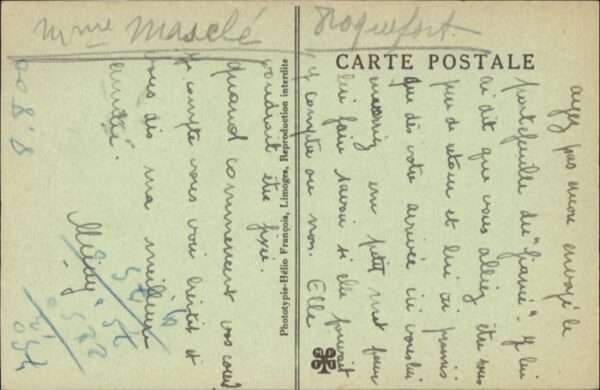 Mme Masclé Roquefort.
CARTE POSTALE
ayez pas encore envoyé le
portefeuille du "fiancé". Je lui
ai dit que vous alliez être sous
peu de retour et lui ai promis
que dès votre arrivée ici vous lui
un petit mot pour
lui faire savoir si elle pouvait
y compter ou non. Elle
voudrait être fixée.
Quand commencent vos cours
Je compte vous voir bientôt et
vous dis ma meilleure
amitié.
Phototypie-Hélio François, Limoges, Reproduction interdite